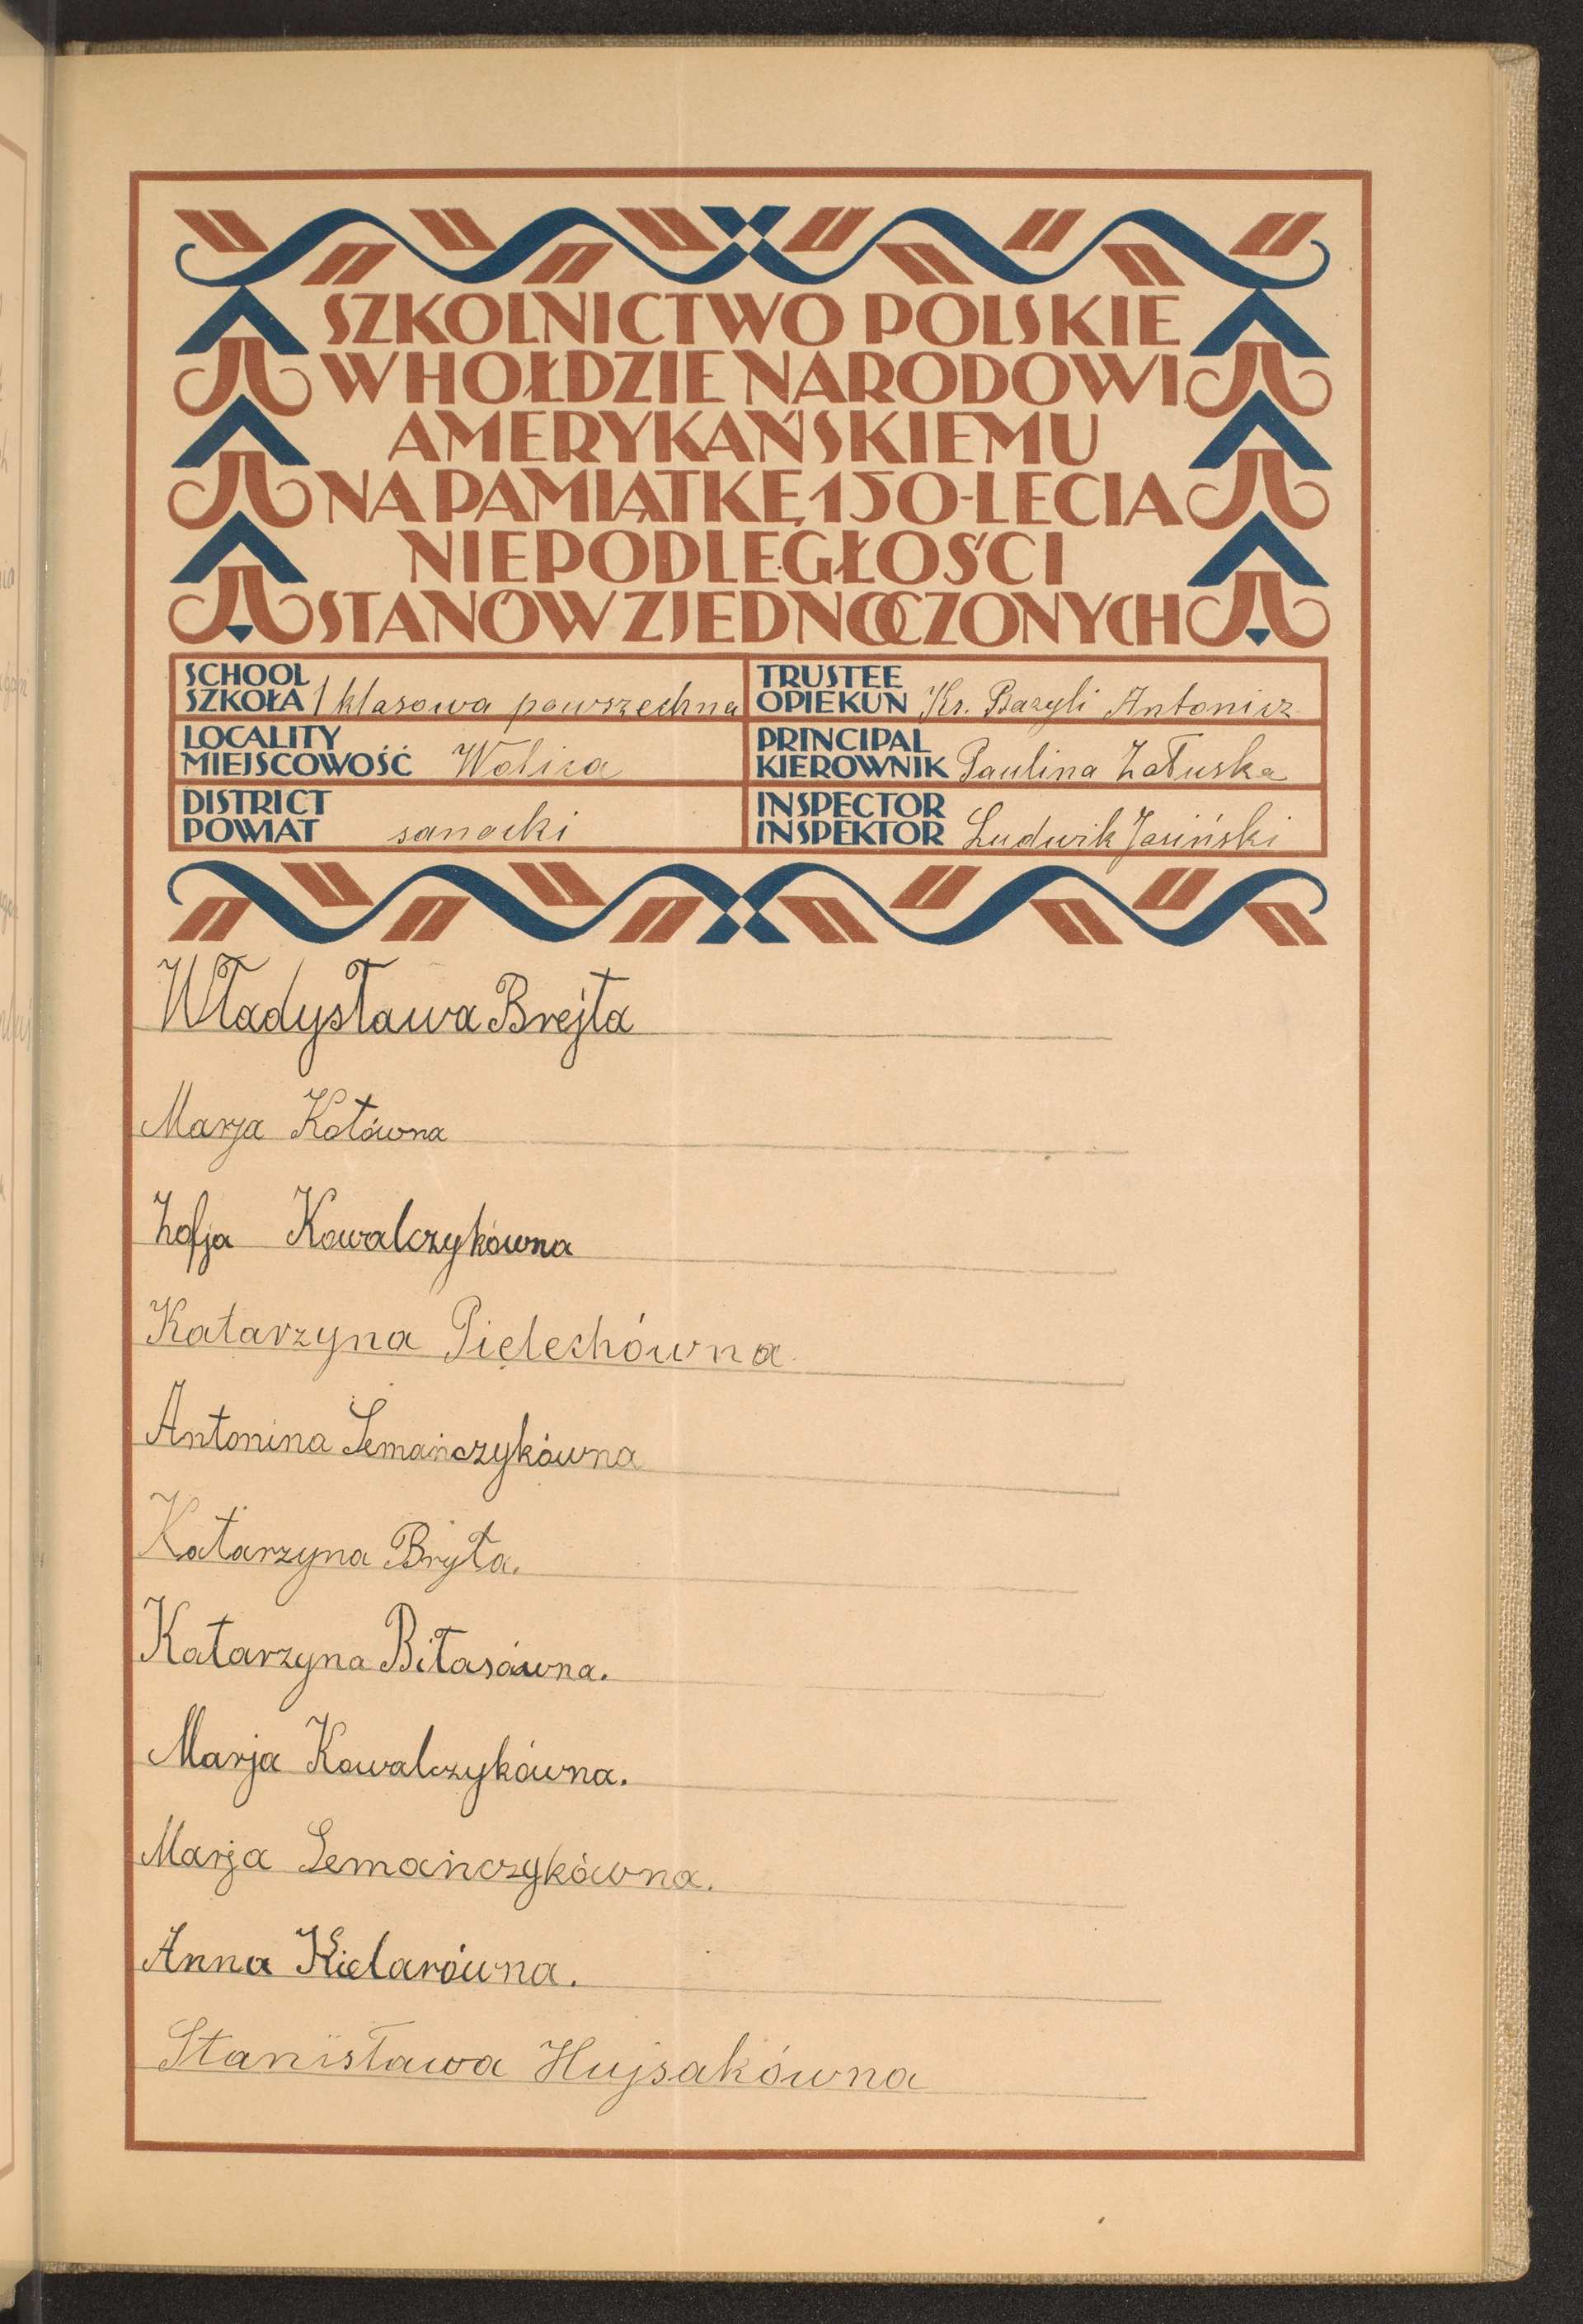 SZKOLNICTWO POLSKIE
W HOŁDZIE NARODOWI
AMERYKAŃSKIEMU
NA PAMIĄTKĘ 150-LECIA
NIEPODLEGŁOŚCI
STANÓW ZJEDNOCZONYCH
SCHOOL
SZKOŁA 1 klasowa powszechna
TRUSTEE
OPIEKUN Ks. Bazyli Antonicz
LOCALITY
MIEJSCOWOŚĆ Wolica
PRINCIPAL
KIEROWNIK Paulina Załuska
DISTRICT
POWIAT sanocki
INSPECTOR
INSPEKTOR Ludwik Jasiński
Władysława Brejta
Marja Kotówna
Zofja Kowalczykówna
Katarzyna Pielechówna
Antonina Semańczykówna
Katarzyna Bryta.
Katarzyna Bitasówna.
Marja Kowalczykówna.
Marja Semańczykówna.
Anna Kielarówna.
Stanisława Hujsakówna